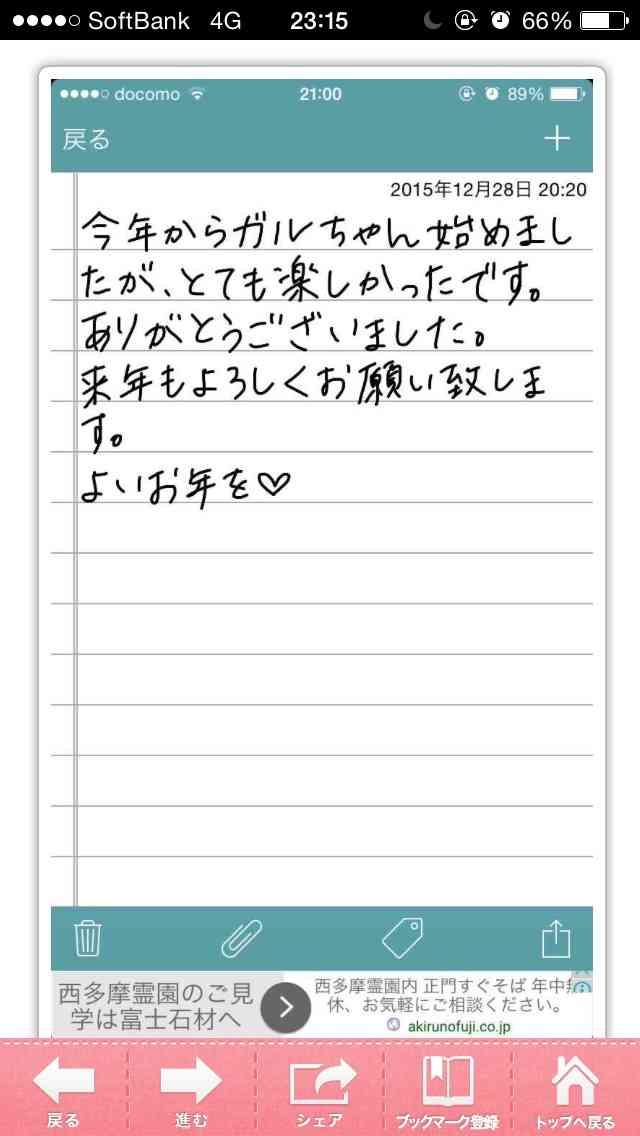 SoftBank 4G 23:15 66%
docomo 21:00 89%
戻る
2015年12月28日 20:20
今年からガルちゃん始めまし
たが、とても楽しかったです。
ありがとうございました。
来年もよろしくお願い致しま
す。
よいお年を♡
西多摩霊園のご見
学は富士石材へ
西多摩霊園内 正門すぐそば 年中無
休、お気軽にご相談ください。
akirunofuji.co.jp
戻る 進む シェア ブックマーク登録 トップへ戻る